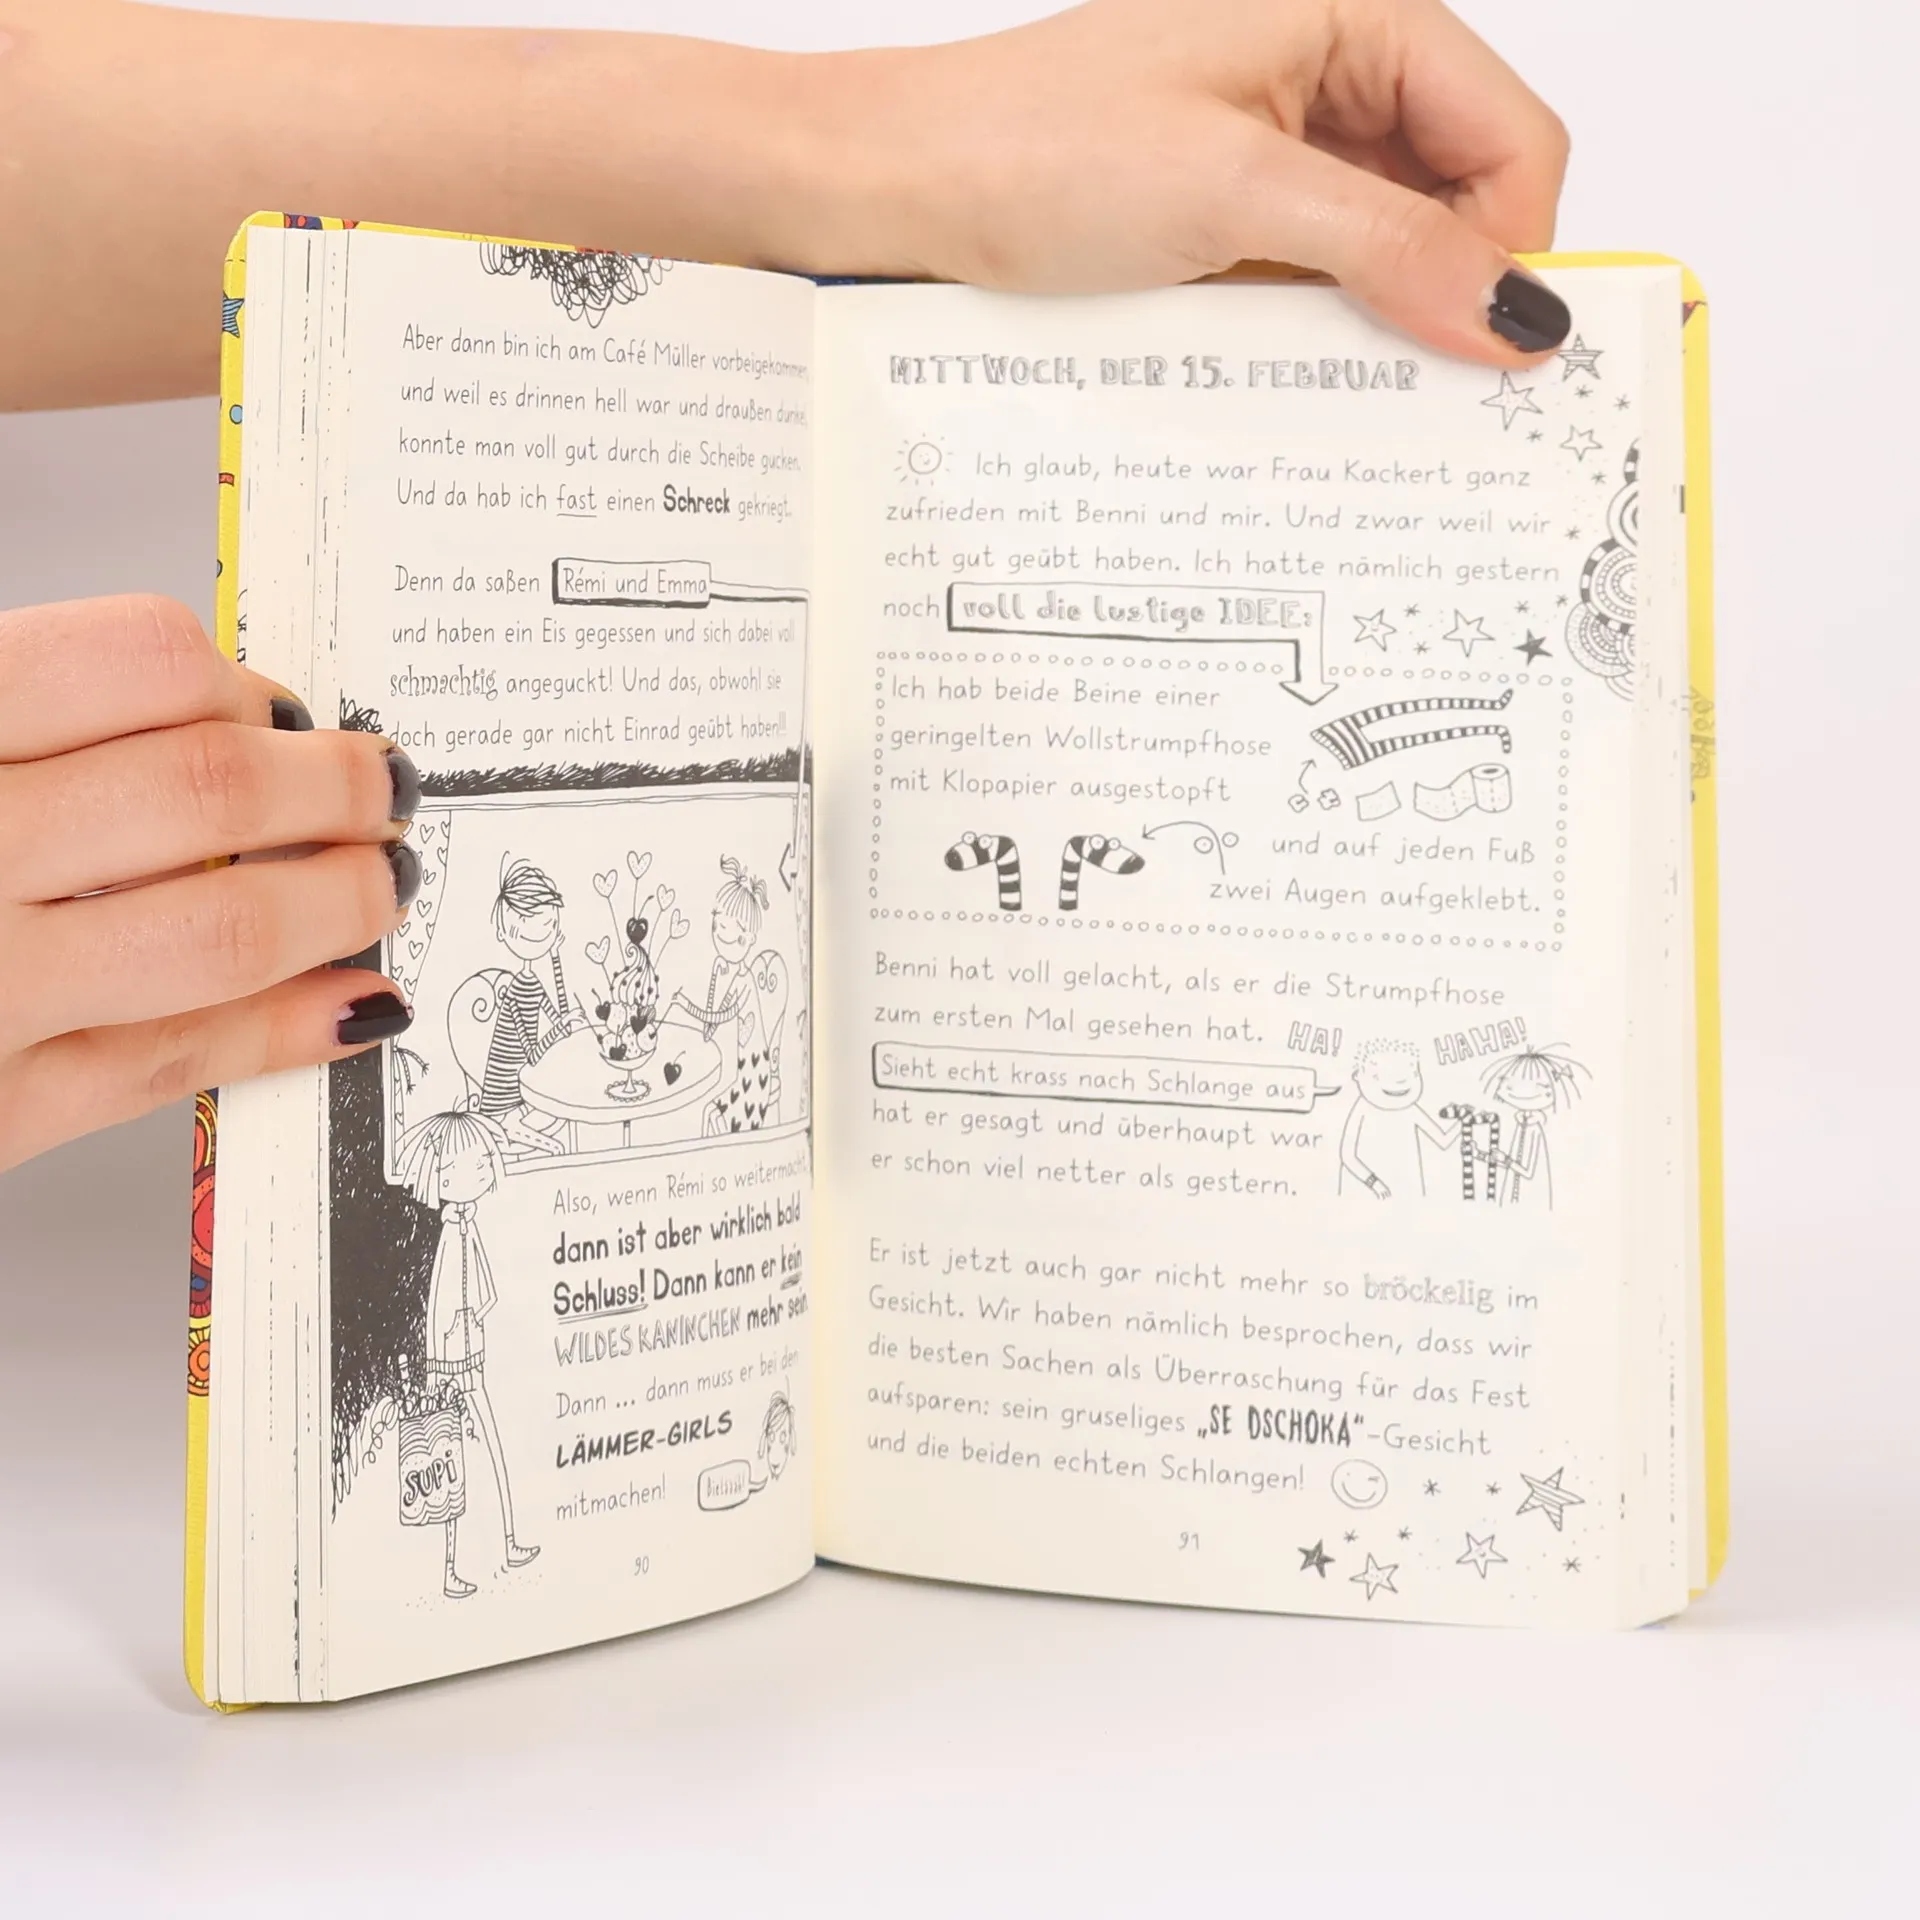 Aber dann bin ich am Café Müller vorbeigekommen,
und weil es drinnen hell war und draußen dunkel,
konnte man voll gut durch die Scheibe gucken.
Und da hab ich fast einen Schreck gekriegt.
Denn da saßen Rémi und Emma
und haben ein Eis gegessen und sich dabei voll
schmachtig angeguckt! Und das, obwohl sie
doch gerade gar nicht Einrad geübt haben!!!
Also, wenn Rémi so weitermacht,
dann ist aber wirklich bald
Schluss! Dann kann er kein
WILDES KANINCHEN mehr sein.
Dann ... dann muss er bei den
LÄMMER-GIRLS
mitmachen!
SUPI
90
MITTWOCH, DER 15. FEBRUAR
Ich glaub, heute war Frau Kackert ganz
zufrieden mit Benni und mir. Und zwar weil wir
echt gut geübt haben. Ich hatte nämlich gestern
noch voll die lustige IDEE:
Ich hab beide Beine einer
geringelten Wollstrumpfhose
mit Klopapier ausgestopft
und auf jeden Fuß
zwei Augen aufgeklebt.
Benni hat voll gelacht, als er die Strumpfhose
zum ersten Mal gesehen hat.
HA!
HAHA!
Sieht echt krass nach Schlange aus
hat er gesagt und überhaupt war
er schon viel netter als gestern.
Er ist jetzt auch gar nicht mehr so bröckelig im
Gesicht. Wir haben nämlich besprochen, dass wir
die besten Sachen als Überraschung für das Fest
aufsparen: sein gruseliges „SE DSCHOKA“-Gesicht
und die beiden echten Schlangen!
91